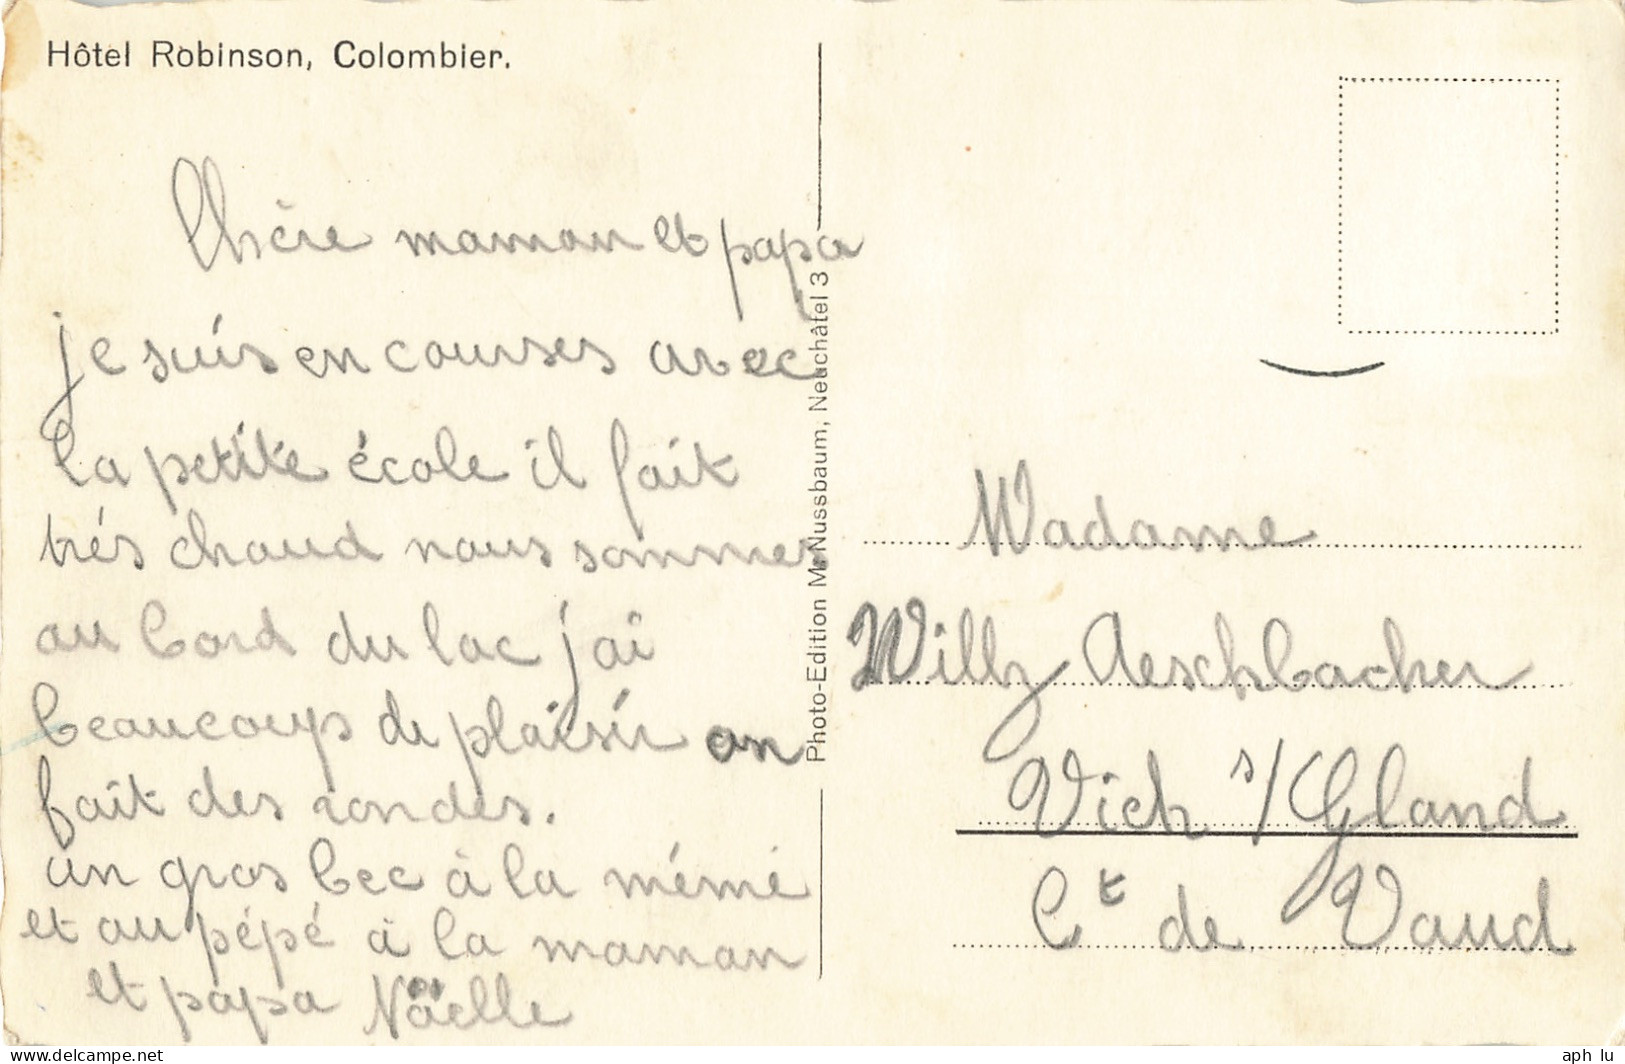 Hôtel Robinson, Colombier.
Chère maman et papa
je suis en courses avec
la petite école il fait
trés chaud nous sommes
au bord du lac j'ai
beaucoups de plaisir on
fait des rondes.
un gros bec à la mémé
et au pépé à la maman
et papa Nöelle
Photo-Edition M. Nussbaum, Neuchâtel 3
Madame
Willy Aeschbacher
Vich s/Gland
Ct de Vaud
delcampe.net
aph lu